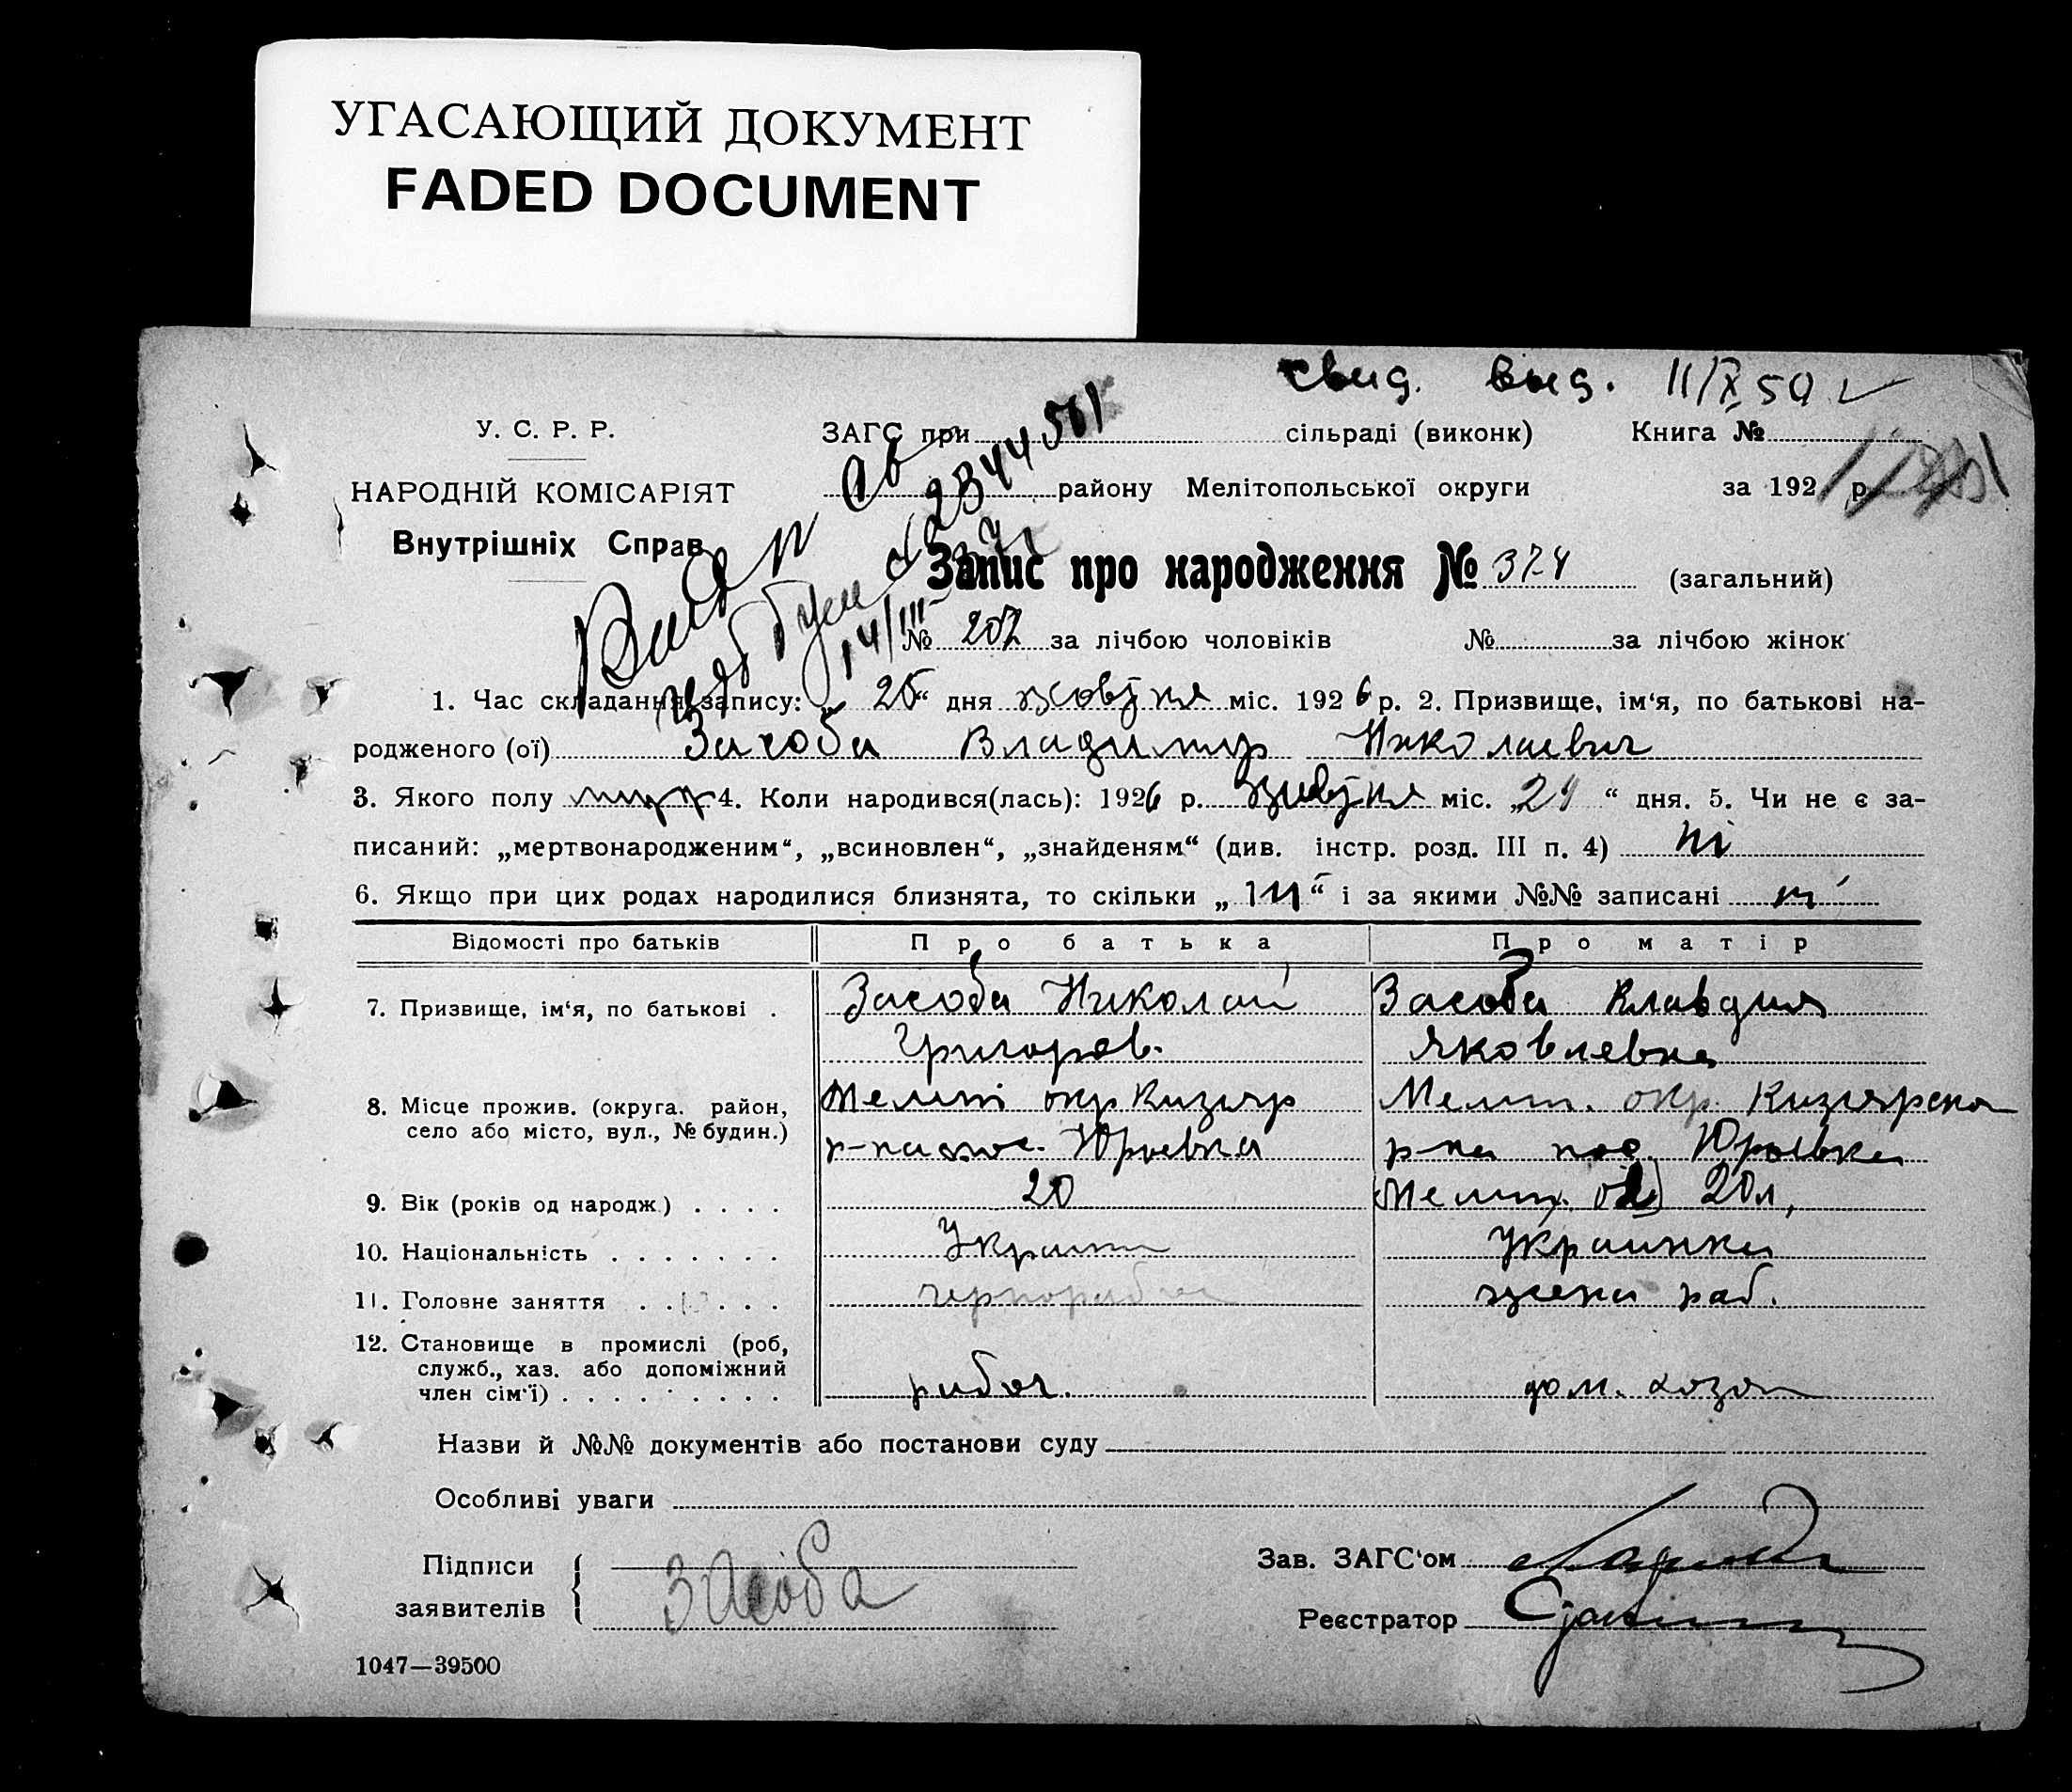 УГАСАЮЩИЙ ДОКУМЕНТ
FADED DOCUMENT
свид. выд. 11/X 50
У. С. Р. Р.
ЗАГС при сільраді (виконк) Книга №
НАРОДНІЙ КОМІСАРІЯТ
району Мелітопольської округи за 192 р.
Внутрішніх Справ
Запис про народження № 374 (загальний)
№ 207 за лічбою чоловіків № за лічбою жінок
1. Час складання запису: „ 25 “ дня жовтня міс. 1926 р. 2. Призвище, ім‘я, по батькові на-
родженого (ої) Засоба Владимир Николаевич
3. Якого полу 4. Коли народився(лась): 1926 р. жовтня міс. „21 “ дня. 5. Чи не є за-
писаний: „мертвонародженим“, „всиновлен“, „знайденям“ (див. інстр. розд. III п. 4) ні
6. Якщо при цих родах народилися близнята, то скільки „ ні “ і за якими №№ записані ні
Відомості про батьків Про батька Про матір
7. Призвище, ім‘я, по батькові . Засоба Николай Засоба Клавдия
Григоров. Яковлевна
8. Місце прожив. (округа. район, Меліт окр Кизияр Мелит. окр. Кизиярском
село або місто, вул., № будин.) р-на пос. Юрьевка р-на пос. Юрьевка
9. Вік (років од народж.) . . . . 20 Мелит. 20 л,
10. Національність . . . . . . . Украин Украинка
11. Головне заняття . . . . . чернорабоч жена раб.
12. Становище в промислі (роб,
служб., хаз. або допоміжний
член сім‘ї) . . . . . . . . . рабоч. дом. хозя
Назви й №№ документів або постанови суду
Особливі уваги
Підписи
заявителів
Засоба
Зав. ЗАГС‘ом
Реєстратор
1047—39500